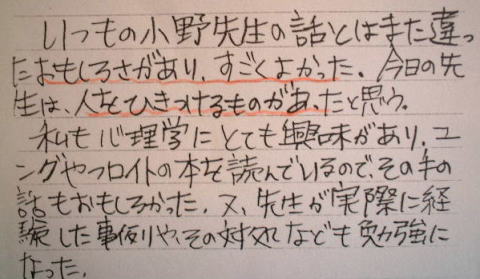 いつもの小野先生の話とはまた違っ
たおもしろさがあり、すごくよかった。今日の先
生は、人をひきつけるものがあったと思う。
私も心理学にとても興味があり、ユ
ングやフロイトの本を読んでいるので、その手の
話もおもしろかった。又、先生が実際に経
験した事例や、その対処なども勉強に
なった。